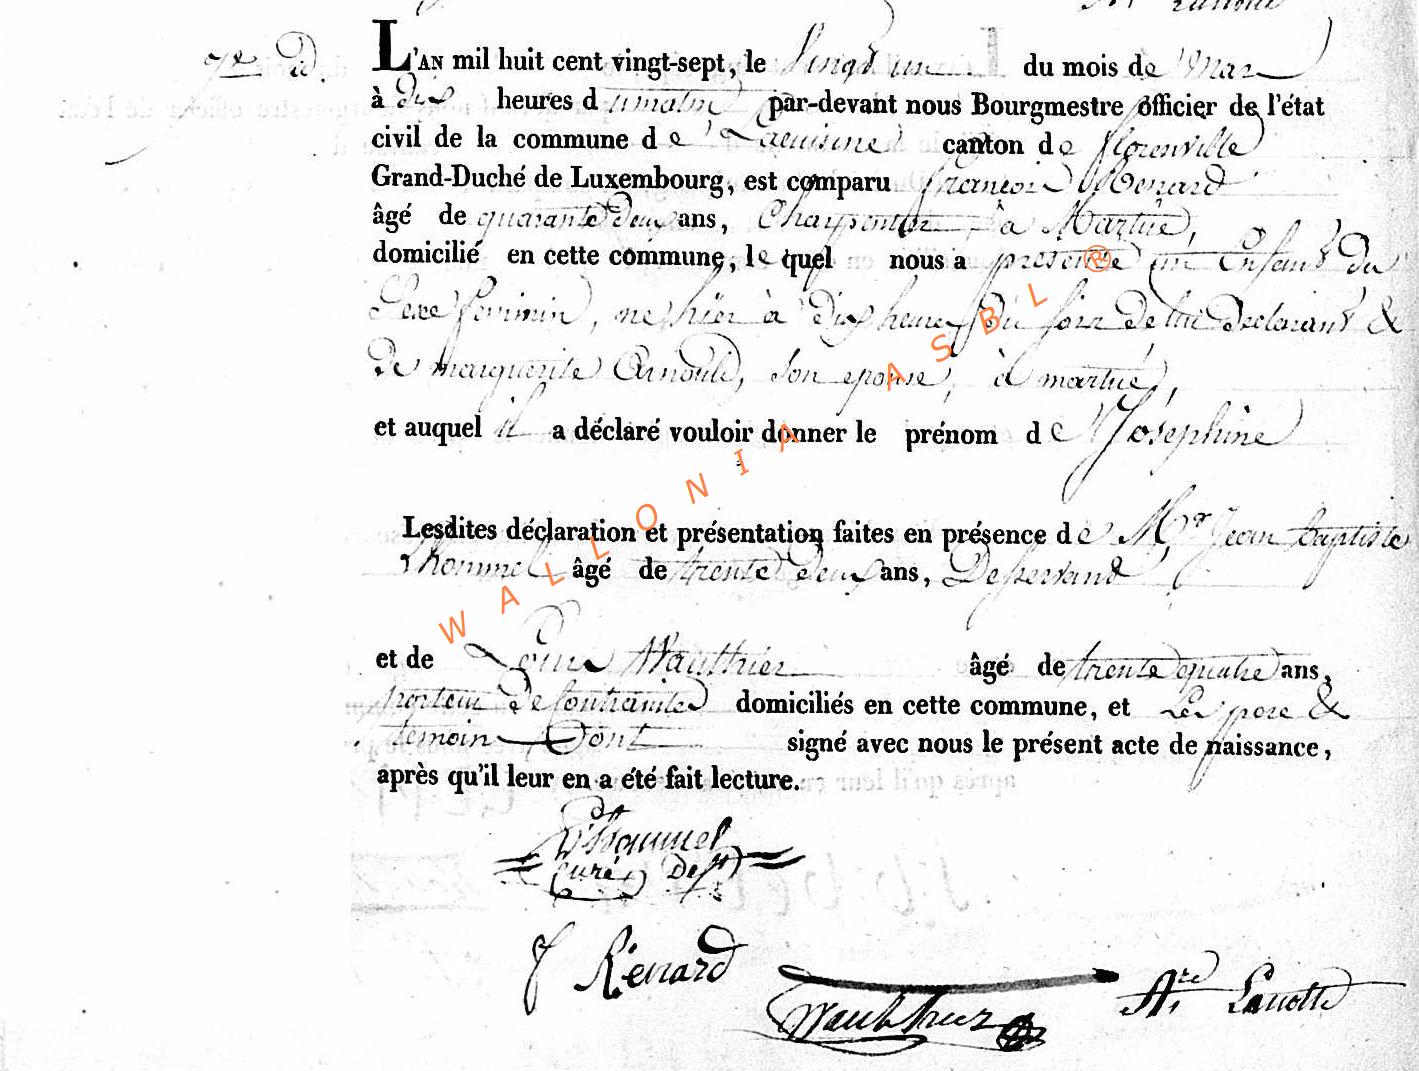 7e d.
L'AN mil huit cent vingt-sept, le vingt un du mois de mar
à dix heures du matin par-devant nous Bourgmestre officier de l'état
civil de la commune de Lacuisine canton de florenville
Grand-Duché de Luxembourg, est comparu françois Renard
âgé de quarante deux ans, Charpentier, à Martué,
domicilié en cette commune, lequel nous a presenté un Enfant du
Sexe feminin, né hier à dix heures du soir de lui declarant &
de marguerite Arnould, son epouse, à martué,
et auquel il a déclaré vouloir donner le prénom de Joséphine
Lesdites déclaration et présentation faites en présence de Mr Jean baptiste
Lhommel âgé de trente deux ans, Desservant
et de Louis Wauthier âgé de trente quatre ans,
porteur de Contrainte domiciliés en cette commune, et Les pere &
temoin Dont signé avec nous le présent acte de naissance,
après qu'il leur en a été fait lecture.
Lhommel
Curé Desst
f Renard
Wauthier Are Lanotte
WALLONIA ASBL ®